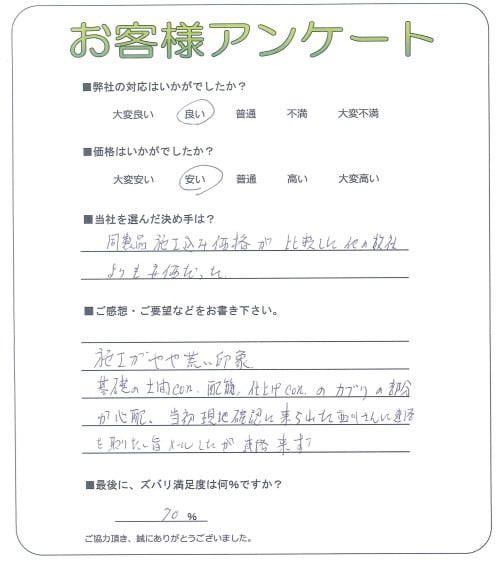 お客様アンケート
■弊社の対応はいかがでしたか？
大変良い 良い 普通 不満 大変不満
■価格はいかがでしたか？
大変安い 安い 普通 高い 大変高い
■当社を選んだ決め手は？
同製品施工込み価格が比較した他の数社
よりも安価だった
■ご感想・ご要望などをお書き下さい。
施工がやや荒い印象
基礎の土間con、配筋、仕上げcon.のカブリの部分
が心配、当初現地確認に来られた さんに連絡
を取りたい旨メールしたが 来ず
■最後に、ズバリ満足度は何%ですか？
70 %
ご協力頂き、誠にありがとうございました。